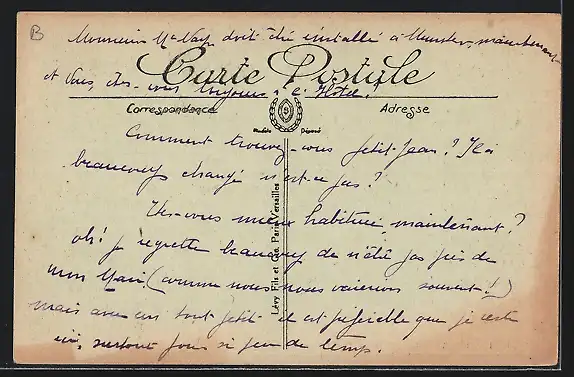 B
Monsieur Mc Nay doit être installé à Munster, maintenant
Carte Postale
et Vous, êtes-vous toujours à l'Hotel?
Correspondance
Adresse
Modèle Déposé
Comment trouvez-vous petit-Jean? Il a
beaucoup changé n'est-ce pas?
Etes-vous mieux habituée, maintenant?
oh! je regrette beaucoup de n'être pas près de
mon Mari (comme nous nous verrions souvent!!)
mais avec un tout petit il est préférable que je reste
ici, surtout pour si peu de temps.
Lévy Fils et Cie, Paris-Versailles